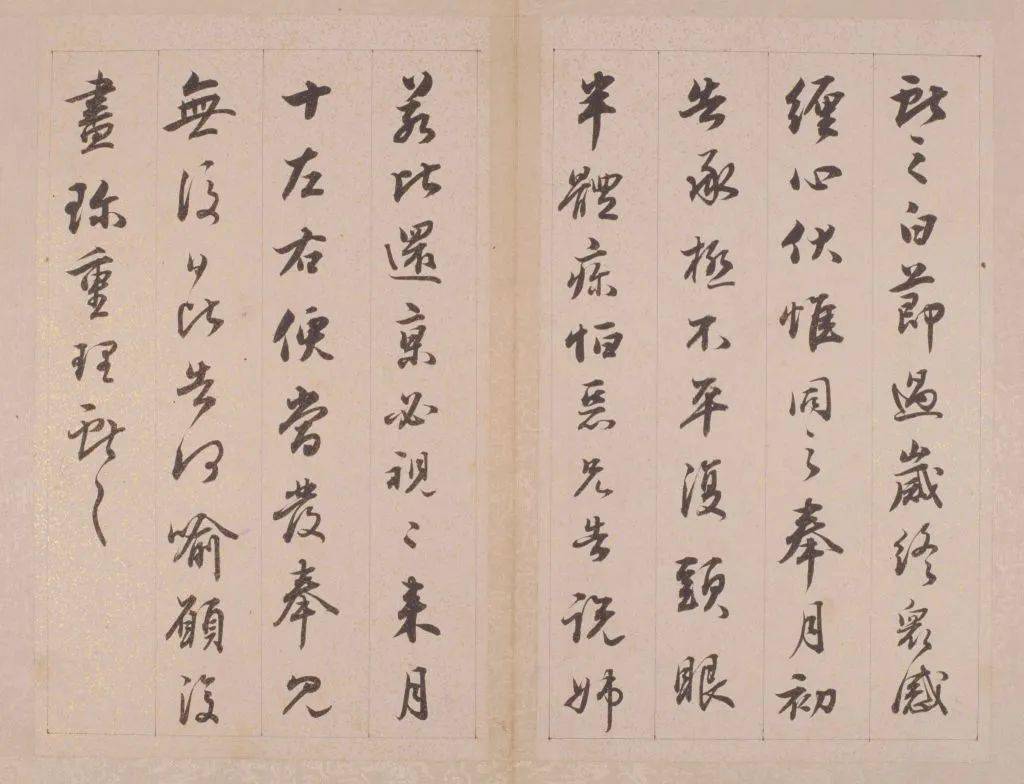 献之白節過歲終衆感
纏心伏惟同之奉月初
告承極不平復頭眼
半體疼怕惡兄告說姊
差比還京必視〻來月
十左右便當發奉見
無復〻此告何喻願復
盡珍重理献〻